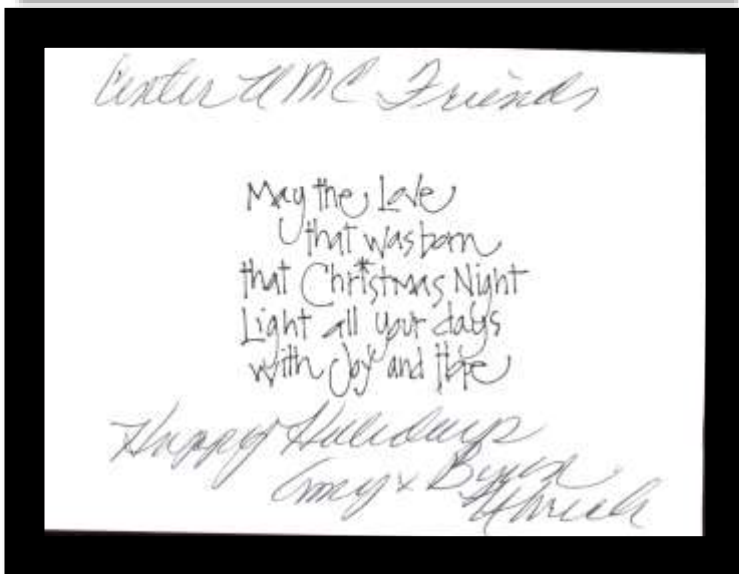 Center UMC Friends
May the Love
that was born
that Christmas Night
Light all your days
with Joy and Hope
Happy Holidays
Amy &